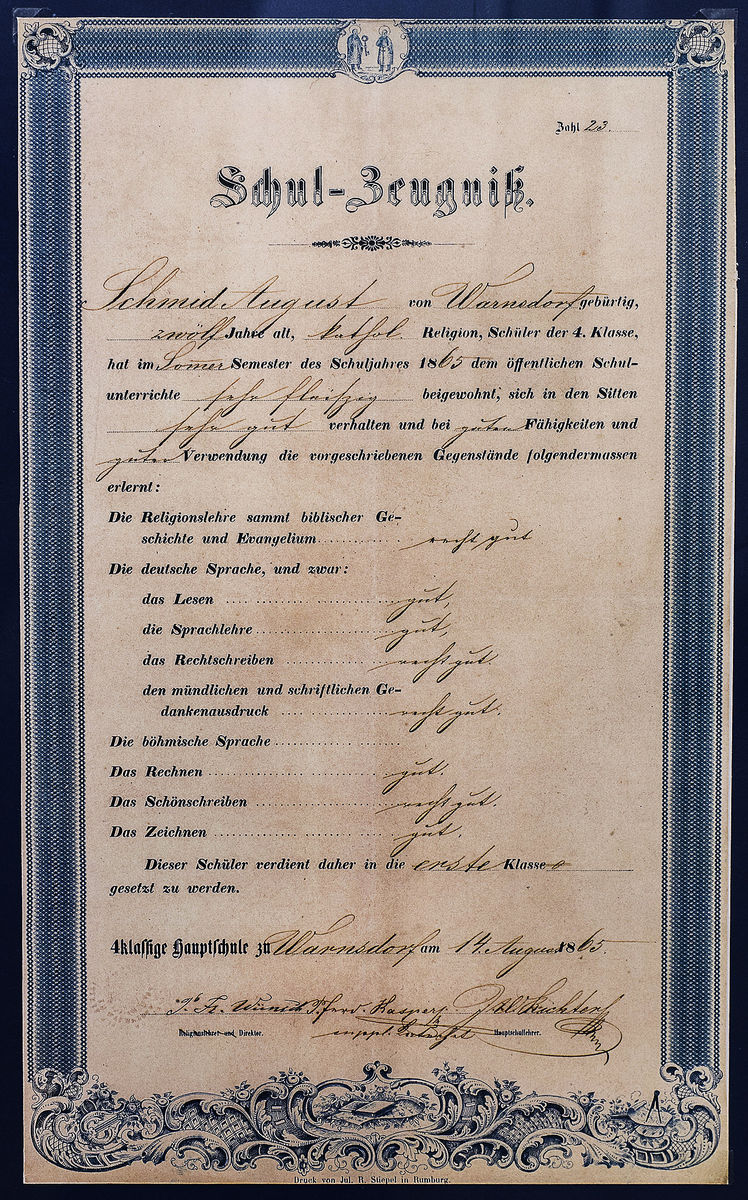 Zahl 23.
Schul-Zeugniß.
Schmid August von Warnsdorf gebürtig,
zwölf Jahre alt, kathol. Religion, Schüler der 4. Klasse,
hat im Somer Semester des Schuljahres 1865 dem öffentlichen Schul-
unterrichte sehr fleißig beigewohnt, sich in den Sitten
sehr gut verhalten und bei guten Fähigkeiten und
guter Verwendung die vorgeschriebenen Gegenstände folgendermassen
erlernt:
Die Religionslehre sammt biblischer Ge-
schichte und Evangelium recht gut
Die deutsche Sprache, und zwar:
das Lesen gut,
die Sprachlehre gut,
das Rechtschreiben recht gut.
den mündlichen und schriftlichen Ge-
dankenausdruck recht gut.
Die böhmische Sprache
Das Rechnen gut.
Das Schönschreiben recht gut.
Das Zeichnen gut.
Dieser Schüler verdient daher in die erste Klasse
gesetzt zu werden.
4klassige Hauptschule zu Warnsdorf am 14. August 1865.
P. Fr. Wunsch P. Ferd. Kasper
Religionslehrer und Direktor. Hauptschullehrer.
Druck von Jul. R. Stiepel in Rumburg.